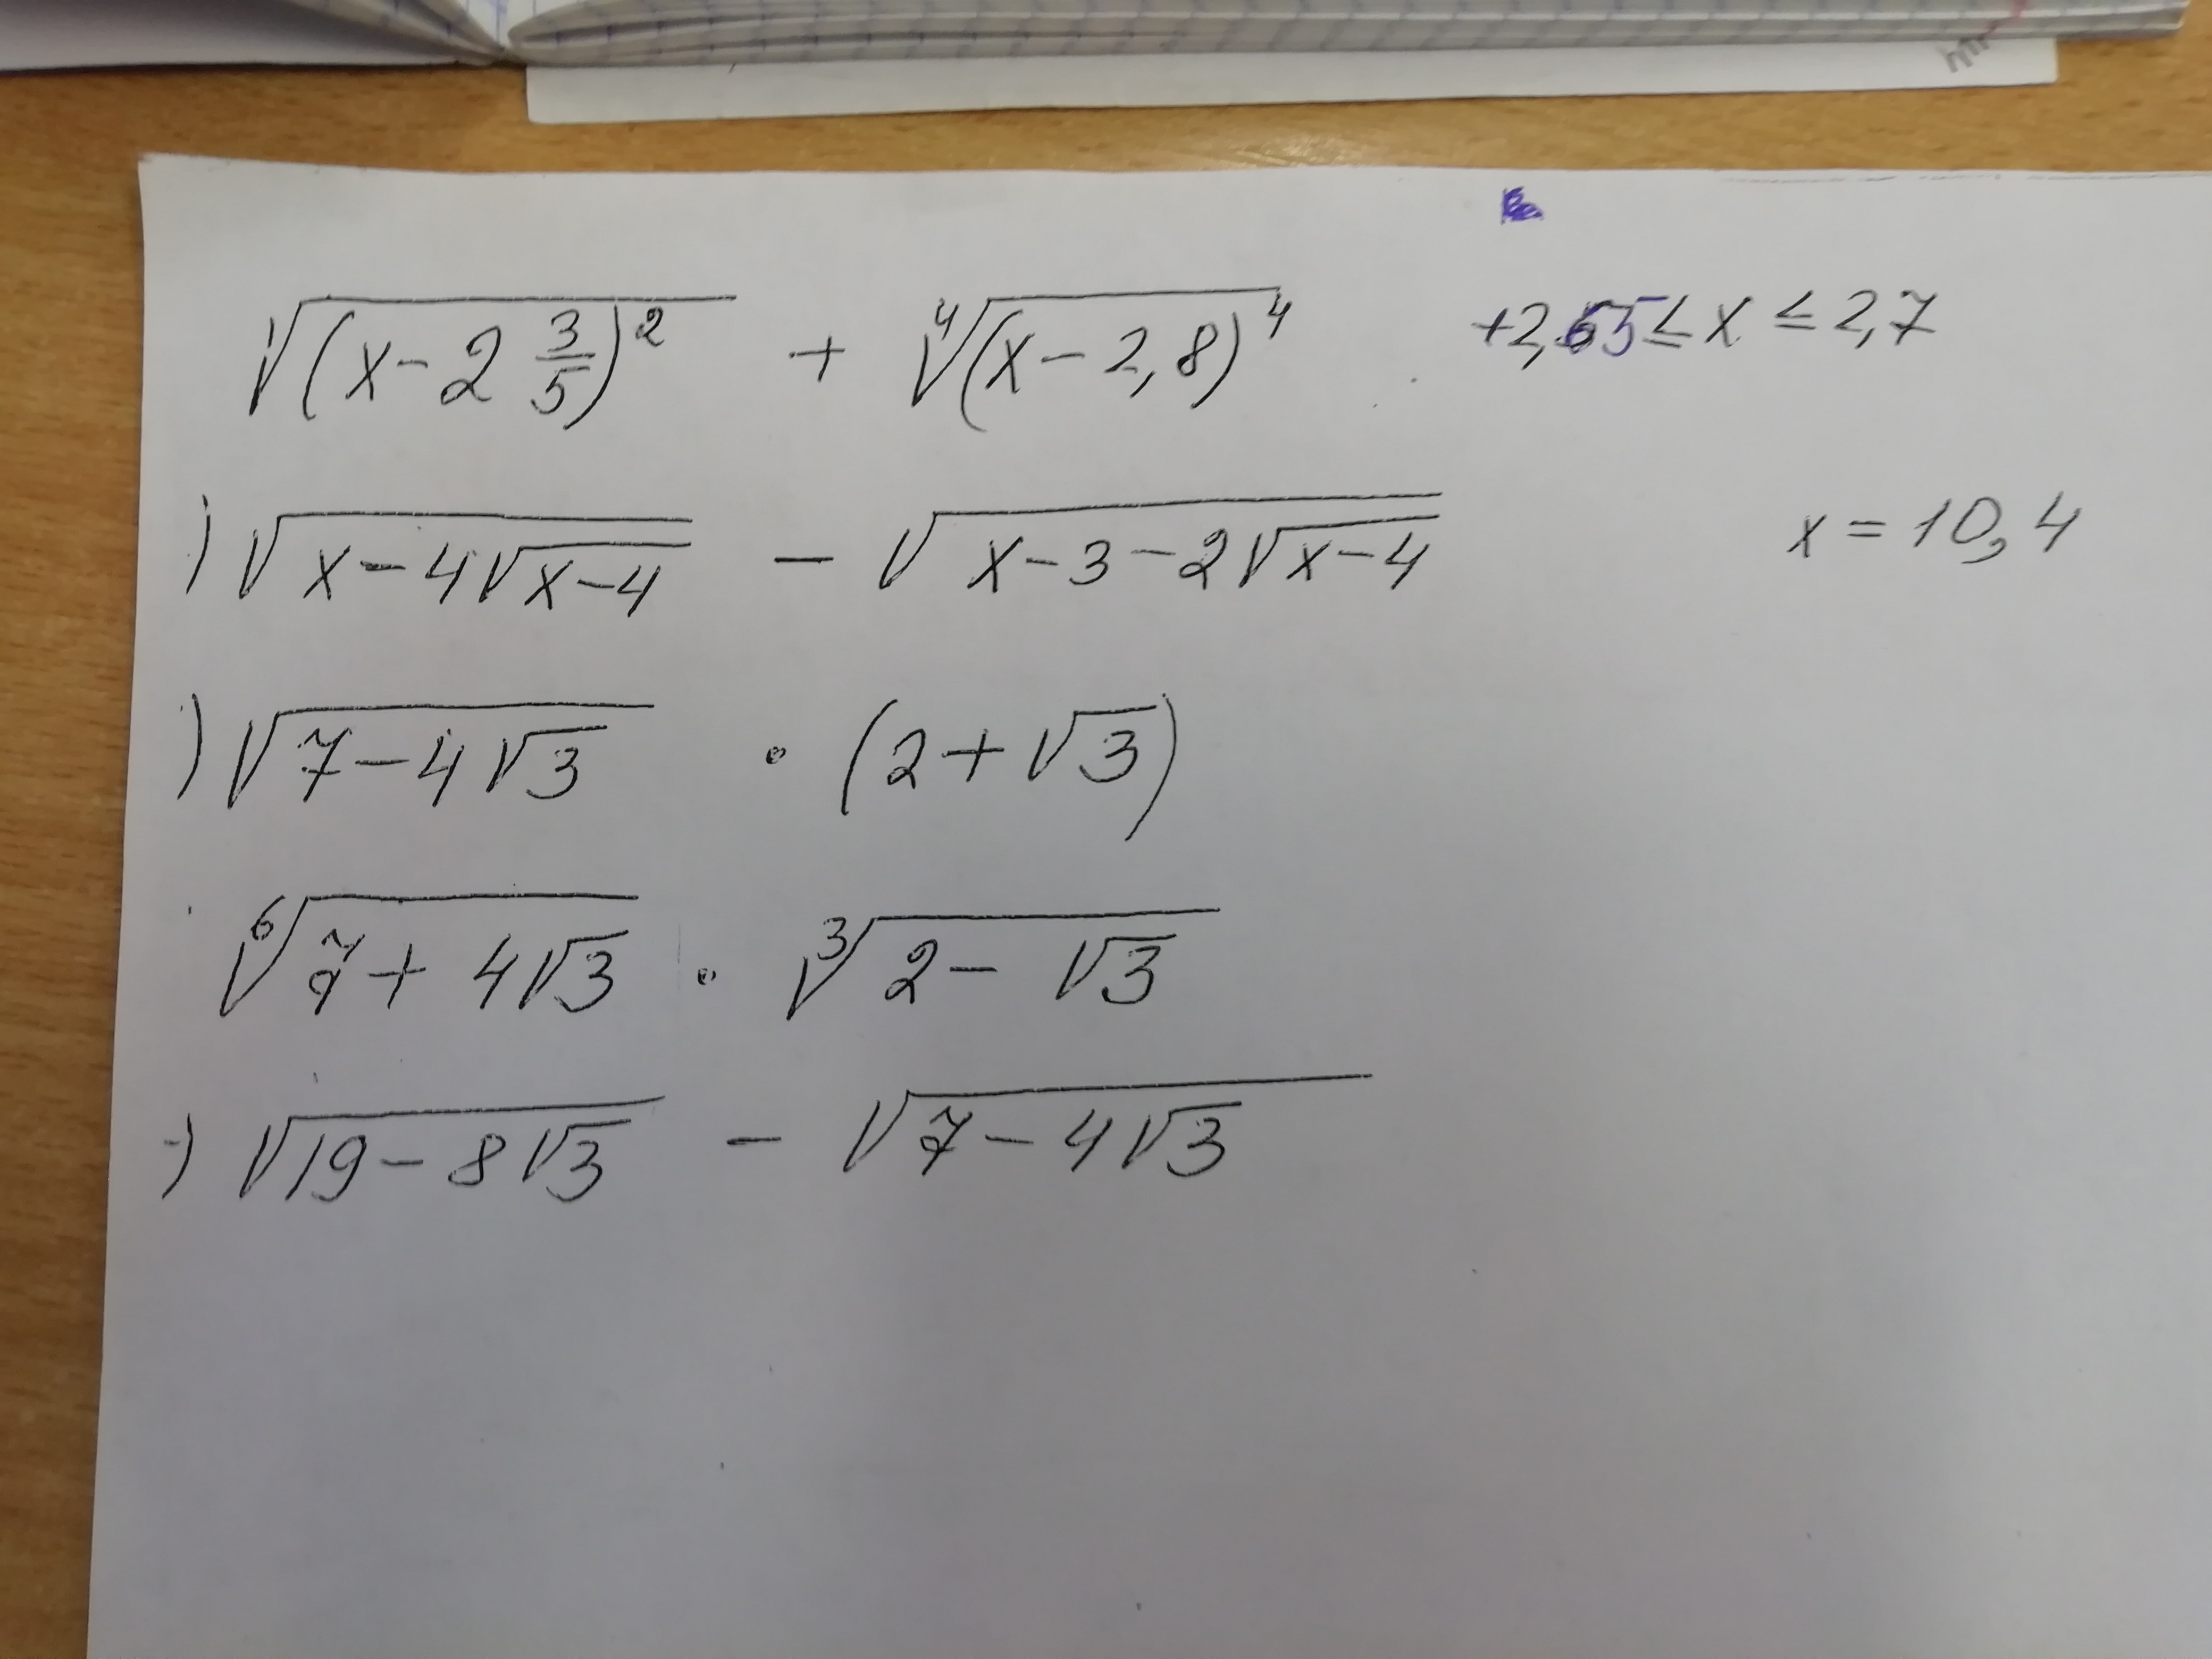 √(x-2 3/5)² + ⁴√(x-2,8)⁴ +2,65 ≤ x ≤ 2,7
) √(x-4√(x-4)) - √(x-3-2√(x-4)) x = 10,4
) √(7-4√3) · (2+√3)
⁶√(7+4√3) · ³√(2-√3)
) √(19-8√3) - √(7-4√3)